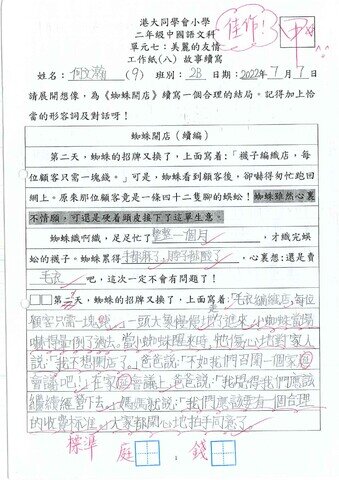 港大同學會小學
二年級中國語文科
單元七：美麗的友情
工作紙(八) 故事續寫
佳作！
姓名： 何文瀚 (9) 班別： 2B 日期：2022年7月7日
請展開想像，為《蜘蛛開店》續寫一個合理的結局。記得加上恰
當的形容詞及對話呀！
蜘蛛開店（續編）
第二天，蜘蛛的招牌又換了，上面寫着：「襪子編織店，每
位顧客只需一塊錢。」可是，蜘蛛看到顧客後，卻嚇得匆忙跑回
網上。原來那位顧客竟是一條四十二隻腳的蜈蚣！蜘蛛雖然心裏
不情願，可還是硬着頭皮接下了這單生意。
蜘蛛織啊織，足足忙了整整一個月，才織完蜈
蚣的襪子。蜘蛛累得手都麻了，脖子都酸了，心裏想：還是賣
毛衣吧，這次一定不會有問題了！
第二天，蜘蛛的招牌又換了，上面寫着：「毛衣編織店，每位
顧客只需一塊錢。」一頭大象慢慢地行過來，小蜘蛛當場
嚇得暈倒了過去。當小蜘蛛醒來時，牠傷心地對家人
說：「我不想開店了。」爸爸說：「不如我們召開一個家庭
會議吧！」在家庭會議上，爸爸說：「我覺得我們應該
繼續經營下去。」媽媽就說：「我們應該要有一個合理
的收費標準。」大家都開心地拍手同意了。
標準 庭 錢
1